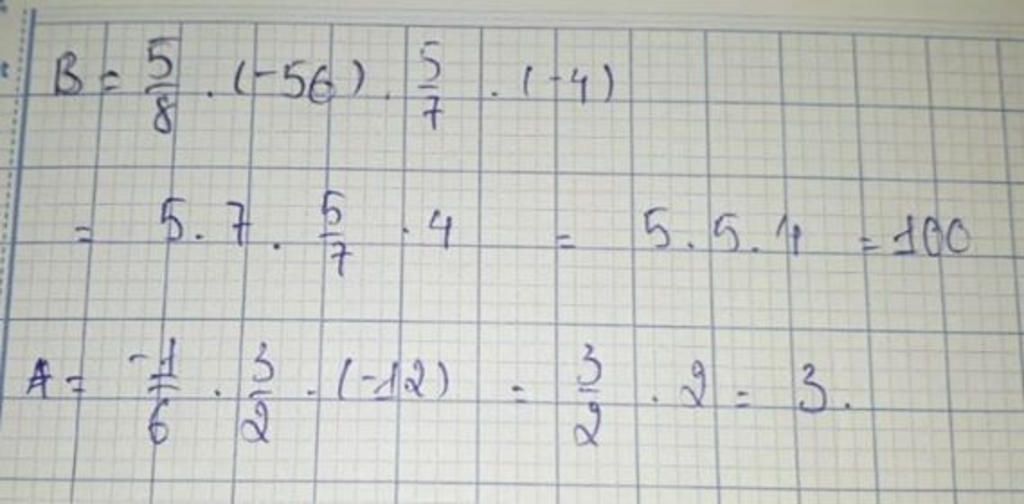 B = 5/8 . (-56) . 5/7 . (-4)
= 5 . 7 . 5/7 . 4 = 5 . 5 . 4 = 100
A = -1/6 . 3/2 . (-12) = 3/2 . 2 = 3 .